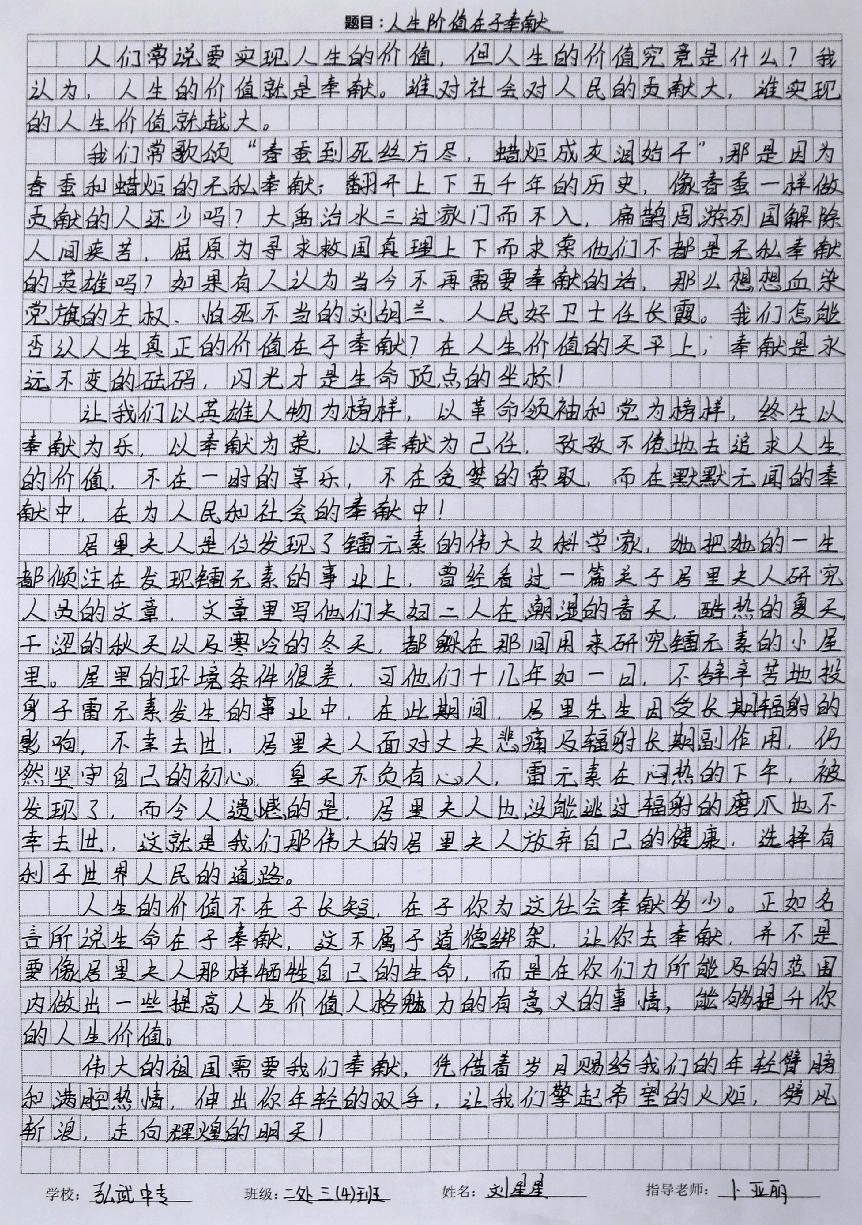 题目：人生价值在于奉献
人们常说要实现人生的价值，但人生的价值究竟是什么？我
认为，人生的价值就是奉献。谁对社会对人民的贡献大，谁实现
的人生价值就越大。
我们常歌颂“春蚕到死丝方尽，蜡炬成灰泪始干”，那是因为
春蚕和蜡炬的无私奉献；翻开上下五千年的历史，像春蚕一样做
贡献的人还少吗？大禹治水三过家门而不入，扁鹊周游列国解除
人间疾苦，屈原为寻求救国真理上下而求索他们不都是无私奉献
的英雄吗？如果有人认为当今不再需要奉献的话，那么想想血染
党旗的左权、怕死不当的刘胡兰、人民好卫士任长霞。我们怎能
否认人生真正的价值在于奉献？在人生价值的天平上，奉献是永
远不变的砝码，闪光才是生命顶点的坐标！
让我们以英雄人物为榜样，以革命领袖和党为榜样，终生以
奉献为乐，以奉献为荣，以奉献为己任，孜孜不倦地去追求人生
的价值，不在一时的享乐，不在贪婪的索取，而在默默无闻的奉
献中，在为人民和社会的奉献中！
居里夫人是位发现了镭元素的伟大女科学家，她把她的一生
都倾注在发现镭元素的事业上，曾经看过一篇关于居里夫人研究
人员的文章，文章里写他们夫妇二人在潮湿的春天，酷热的夏天，
干涩的秋天以及寒冷的冬天，都躲在那间用来研究镭元素的小屋
里。屋里的环境条件很差，可他们十几年如一日，不辞辛苦地投
身于雷元素发生的事业中，在此期间，居里先生因受长期辐射的
影响，不幸去世，居里夫人面对丈夫悲痛及辐射长期副作用，仍
然坚守自己的初心，皇天不负有心人，雷元素在闷热的下午，被
发现了，而令人遗憾的是，居里夫人也没能逃过辐射的磨爪也不
幸去世，这就是我们那伟大的居里夫人放弃自己的健康，选择有
利于世界人民的道路。
人生的价值不在于长短，在于你为这社会奉献多少。正如名
言所说生命在于奉献，这不属于道德绑架，让你去奉献，并不是
要像居里夫人那样牺牲自己的生命，而是在你们力所能及的范围
内做出一些提高人生价值人格魅力的有意义的事情，能够提升你
的人生价值。
伟大的祖国需要我们奉献，凭借着岁月赐给我们的年轻臂膀
和满腔热情，伸出你年轻的双手，让我们擎起希望的火炬，劈风
斩浪，走向辉煌的明天！
学校：弘武中专 班级：二处三(4)班 姓名：刘星星 指导老师：卜亚丽